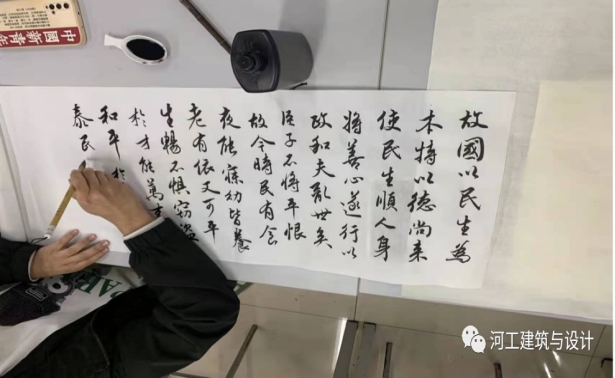 故國以民生為
本特以德尚来
使民生順人身
将善心遂行以
政和夫亂世矣
臣子不将平恨
故今時民有食
夜能寐幼皆養
老有依又可平
生暢不惧窃盗
於才能萬
和平於
泰民
中國新青年
河工建筑与设计